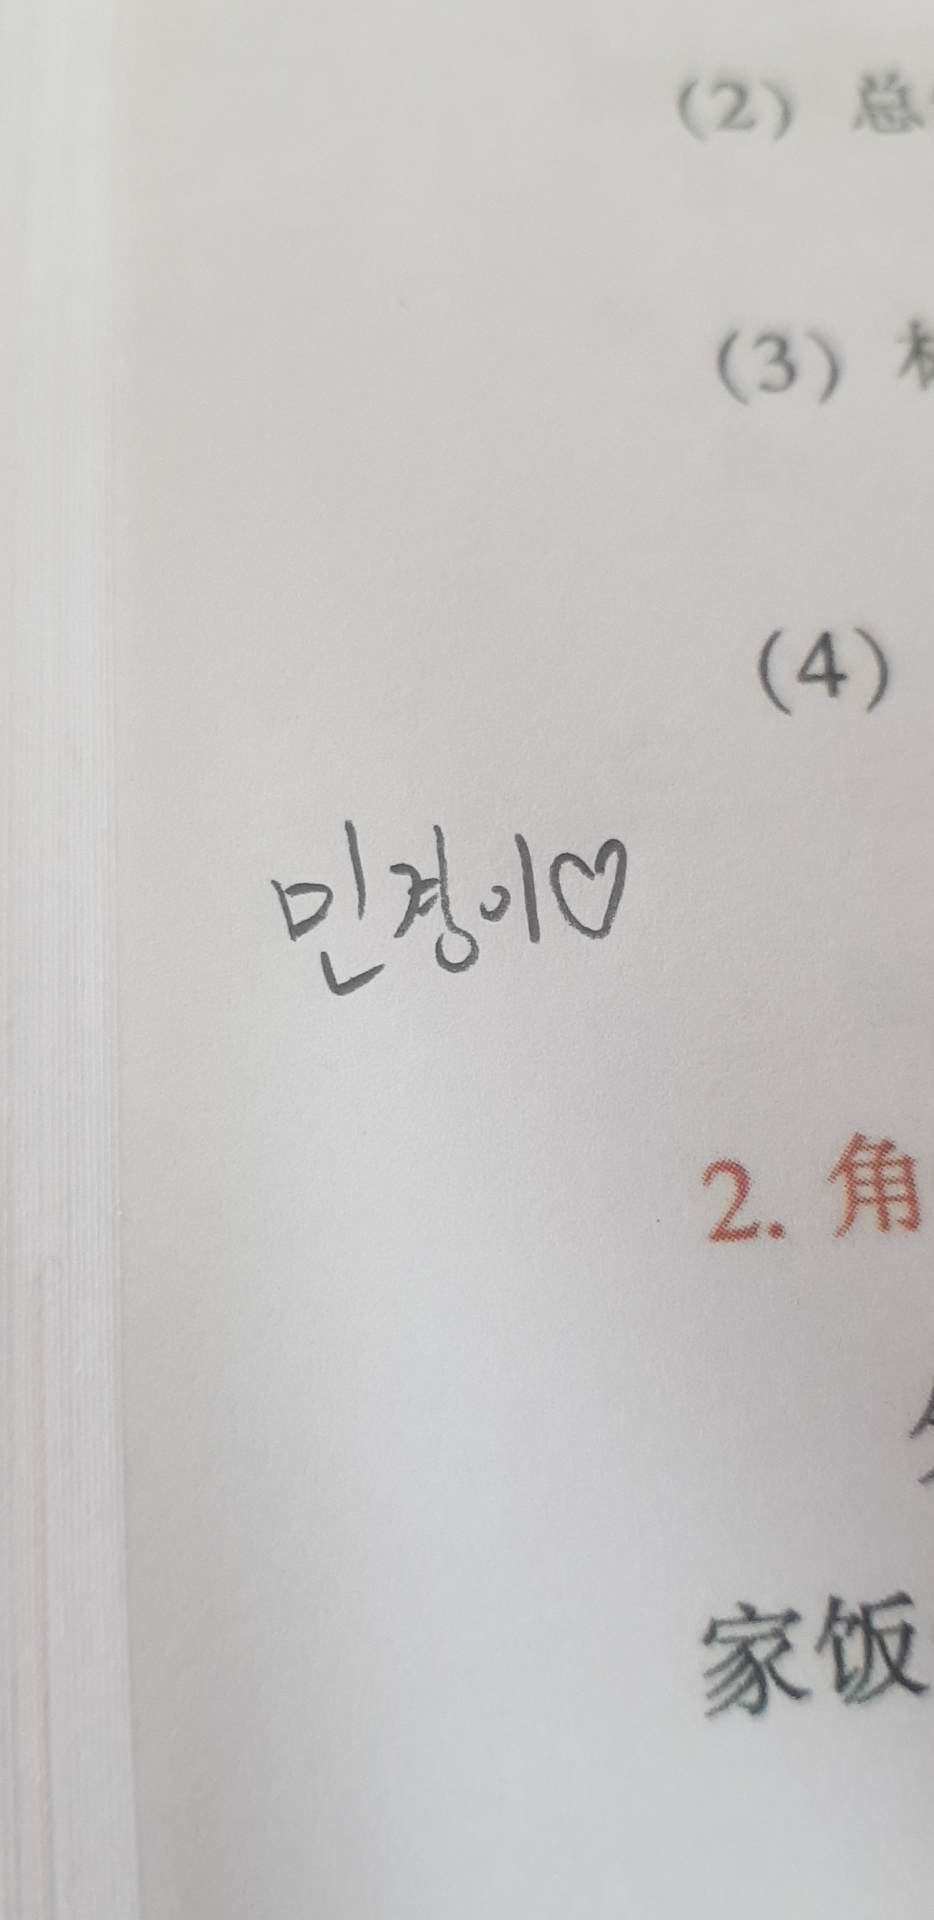 (2) 总
(3)
(4)
민경이♡
2. 角
家饭